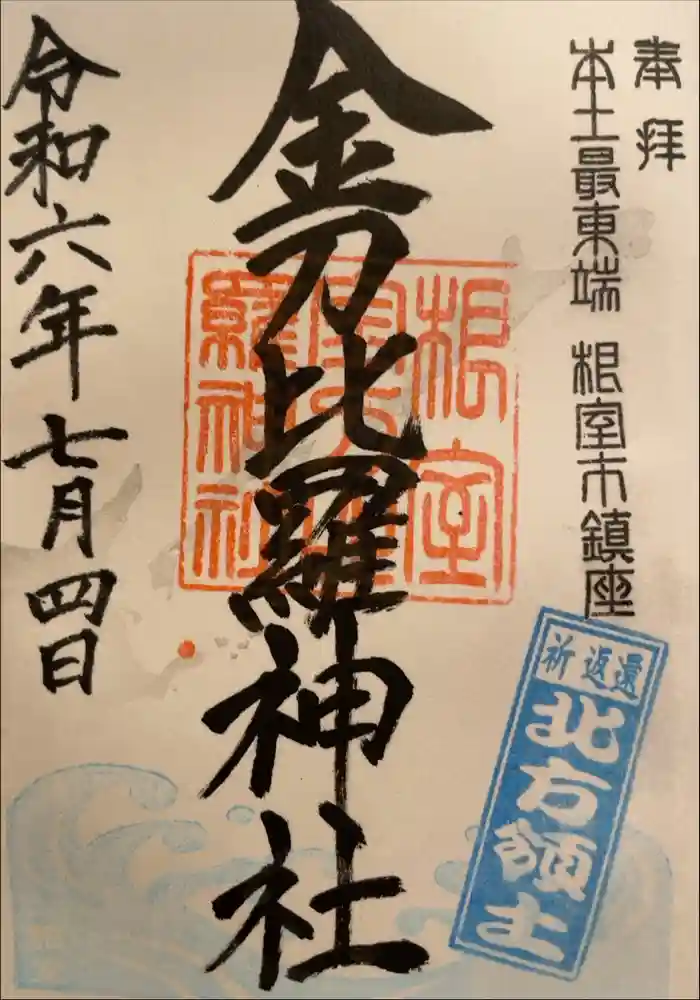 奉拝
本土最東端 根室市鎮座
金刀比羅神社
令和六年七月四日
祈返還
北方領土